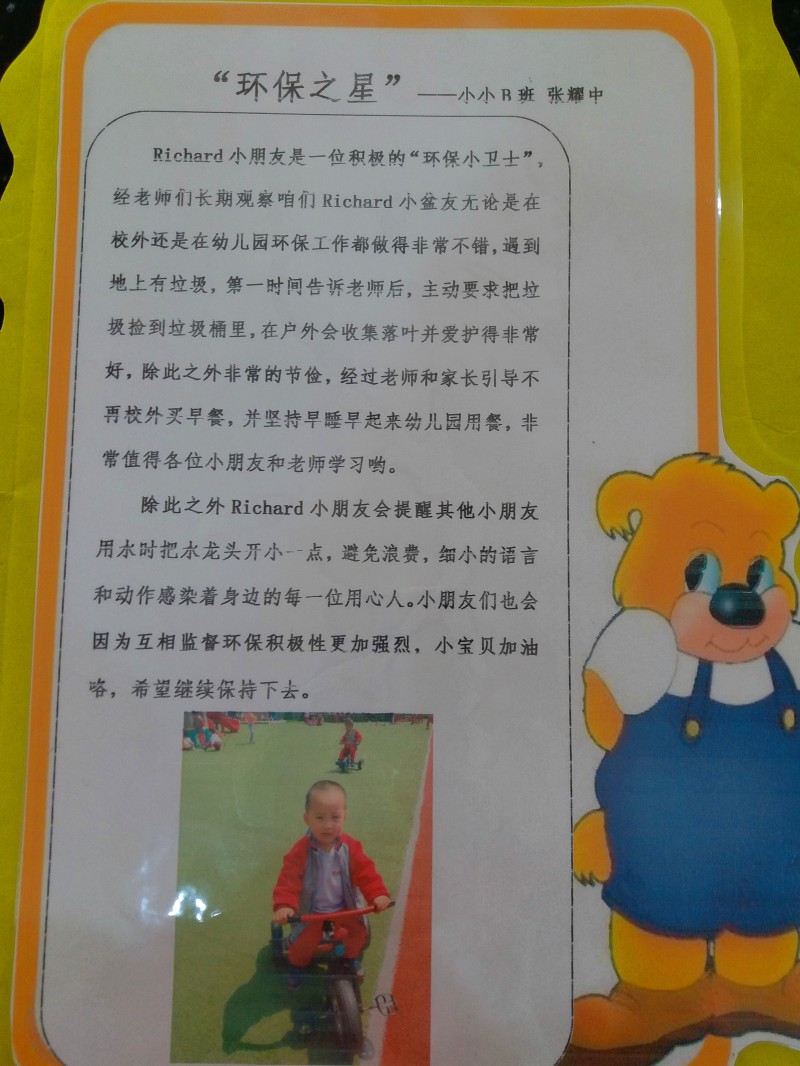 “环保之星” ——小小 B 班 张耀中
Richard 小朋友是一位积极的“环保小卫士”，
经老师们长期观察咱们 Richard 小盆友无论是在
校外还是在幼儿园环保工作都做得非常不错，遇到
地上有垃圾，第一时间告诉老师后，主动要求把垃
圾捡到垃圾桶里，在户外会收集落叶并爱护得非常
好，除此之外非常的节俭，经过老师和家长引导不
再校外买早餐，并坚持早睡早起来幼儿园用餐，非
常值得各位小朋友和老师学习哟。
除此之外 Richard 小朋友会提醒其他小朋友
用水时把水龙头开小一点，避免浪费，细小的语言
和动作感染着身边的每一位用心人。小朋友们也会
因为互相监督环保积极性更加强烈，小宝贝加油
咯，希望继续保持下去。